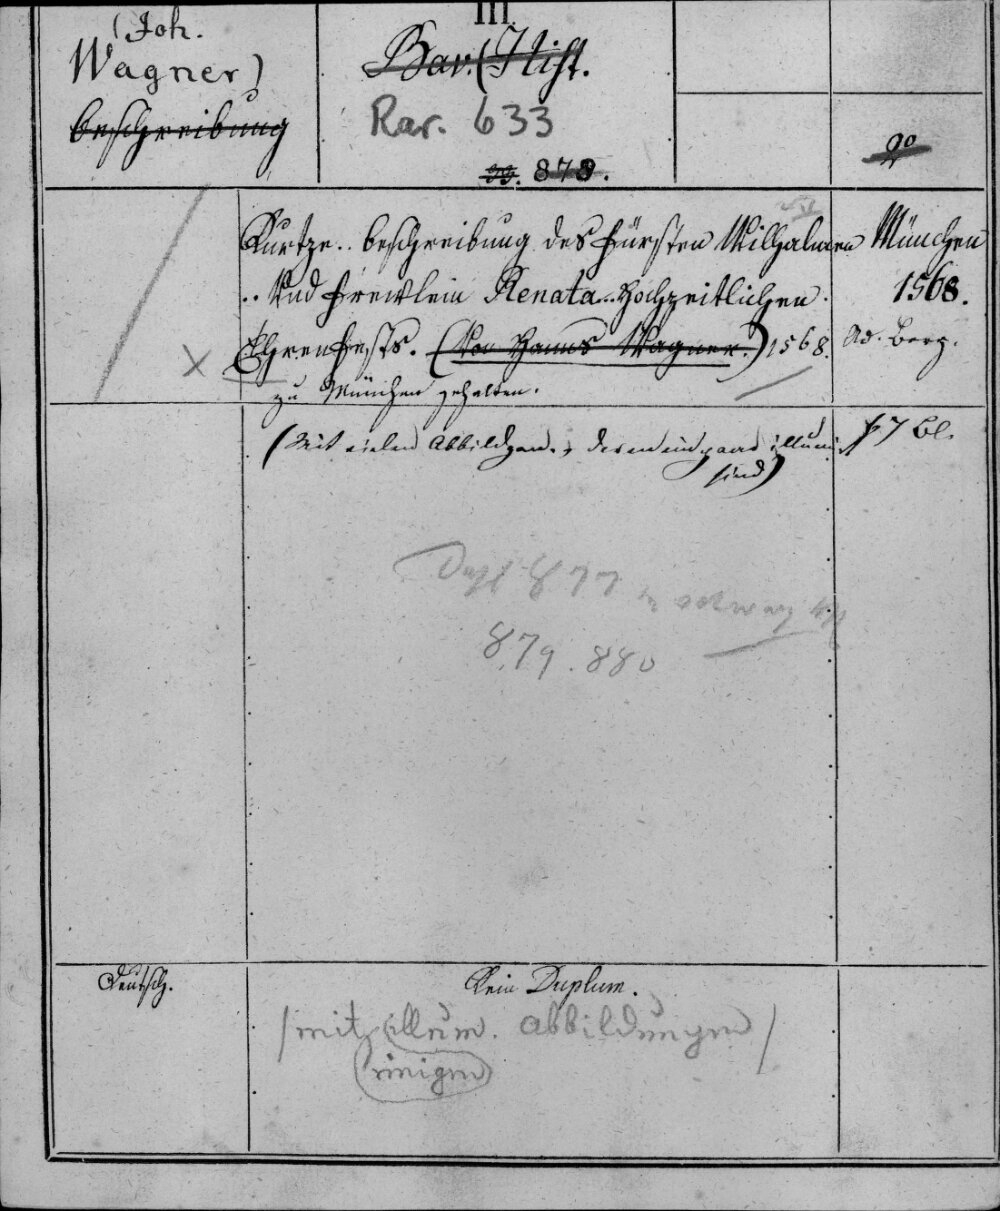 (Joh.
Wagner)
Beschreibung
III.
Bav. (Hist.
Rar. 633
878.
2o
Kurtze.. beschreibung des Fürsten Wilhalmen
.. Vnd Frewlein Renata... Hochzeitlichen
Ehren Fests. (Von Hanns Wagner.) 1568.
zu München gehalten.
München
1568.
Ad. Berg.
(Mit vielen Abbildgen., deren ein paar illum.
sind)
67 Bl.
Dass 877
879. 880
Deutsch.
Kein Duplum.
/ mit illum. Abbildungen /
einigen